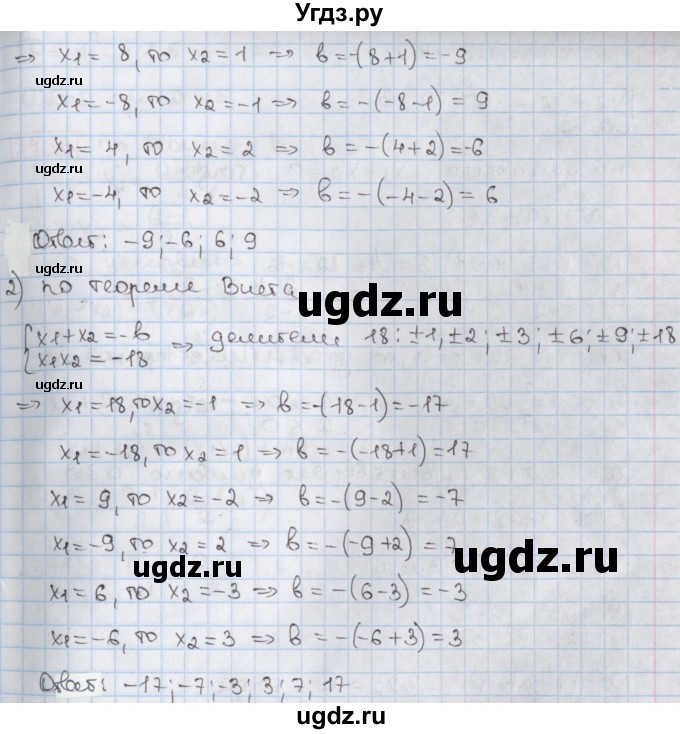 Угдз.ру
⇒ x1 = 8, то x2 = 1 ⇒ b = -(8+1) = -9
ugdz.ru
ugdz.ru
x1 = -8, то x2 = -1 ⇒ b = -(-8-1) = 9
x1 = 4, то x2 = 2 ⇒ b = -(4+2) = -6
ugdz.ru
ugdz.ru
x1 = -4, то x2 = -2 ⇒ b = -(-4-2) = 6
Ответ: -9; -6; 6; 9
ugdz.ru
2) по теореме Виета
ugdz.ru
{x1 + x2 = -b
x1x2 = -18 ⇒ делители 18: ±1, ±2; ±3; ±6; ±9; ±18
⇒ x1 = 18, то x2 = -1 ⇒ b = -(18-1) = -17
x1 = -18, то x2 = 1 ⇒ b = -(-18+1) = 17
x1 = 9, то x2 = -2 ⇒ b = -(9-2) = -7
x1 = -9, то x2 = 2 ⇒ b = -(-9+2) = 7
ugdz.ru
ugdz.ru
x1 = 6, то x2 = -3 ⇒ b = -(6-3) = -3
x1 = -6, то x2 = 3 ⇒ b = -(-6+3) = 3
Ответ: -17; -7; -3; 3; 7; 17
ugdz.ru
ugdz.ru
ugdz.ru